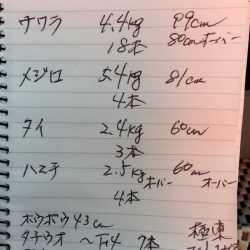 サワラ 4.4kg 99cm
18本 80cmオーバー
メジロ 5.4kg 81cm
4本
タイ 2.4kg 60cm
3本
ハマチ 2.5kgオーバー 60cmオーバー
4本
ホウボウ43cm
タチウオ 〜F4 7本 極東